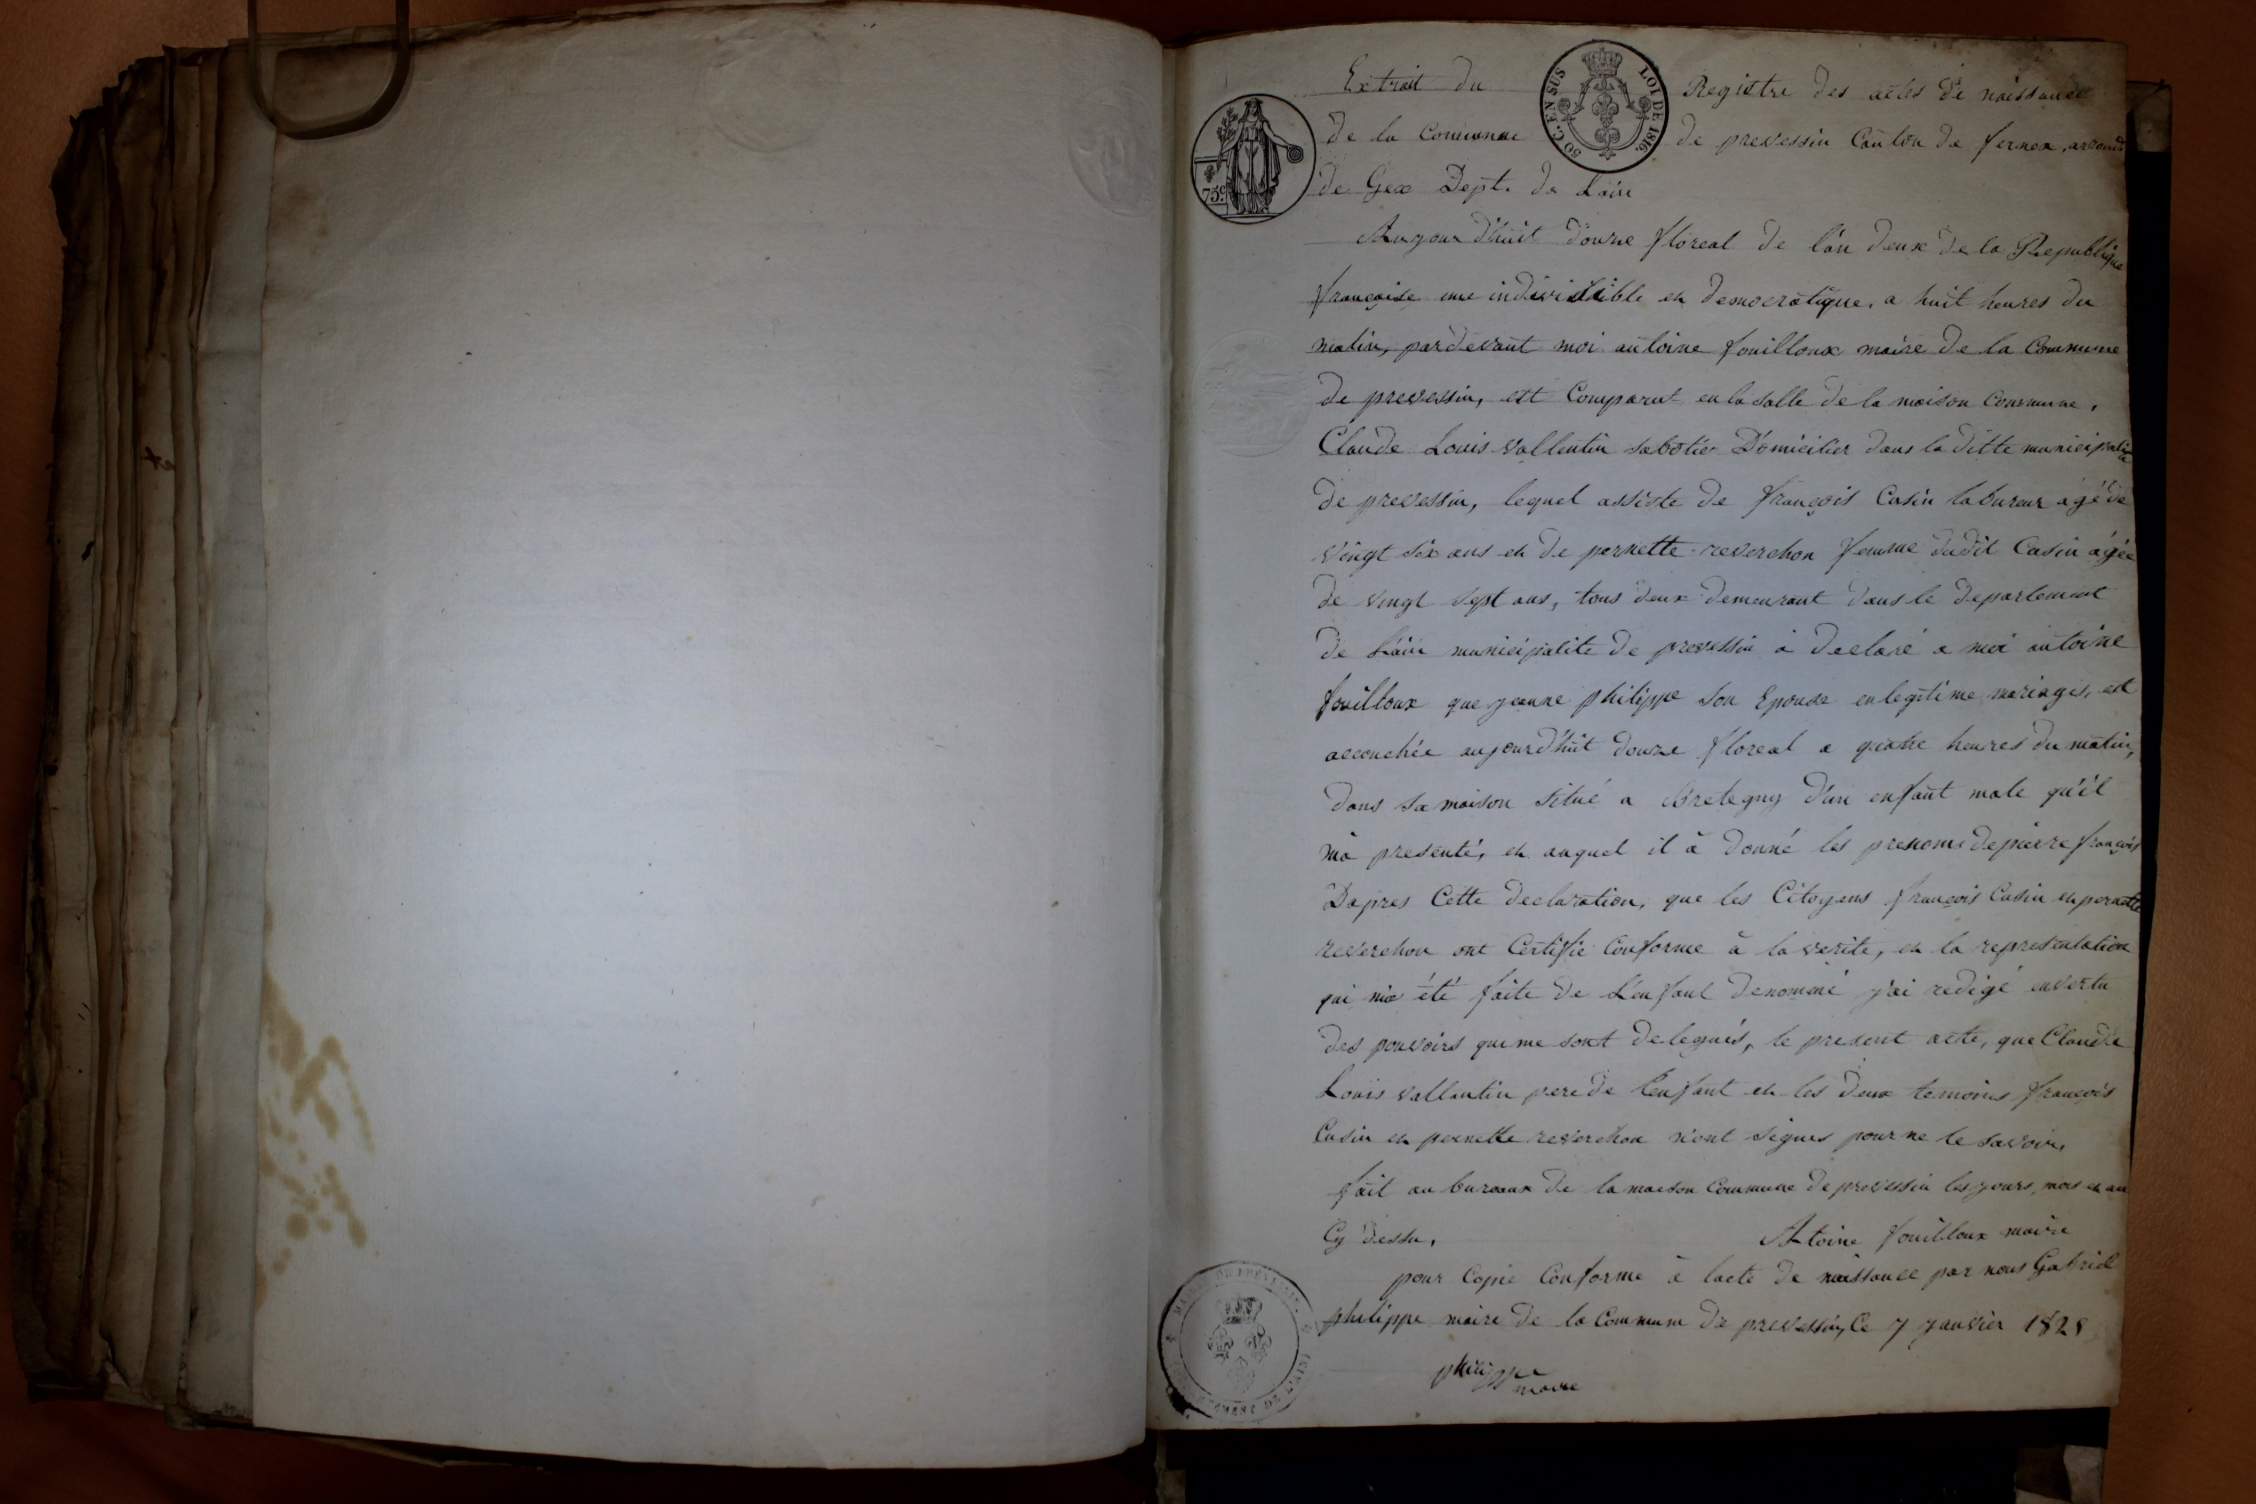 Extrait du Registre des actes de naissance
50 C. EN SUS LOI DE 1816.
75c
de la Commune de prevessin Canton de fernex, arrond
de Gex Dept. de Lain
Aujourd'huit douze floreal de l'an deux de la Republique
françoise une indivisible et democratique, a huit heures du
matin, pardevant moi antoine fouilloux maire de la Commune
de prevessin, est Comparut en la salle de la maison Commune,
Claude Louis vallentin sabotier Domicilier dans la ditte municipalité
de prevessin, lequel assiste de françois Casin labureur agé de
vingt six ans et de pernette reverchon femme dudit Casin agée
de vingt sept ans, tous deux demeurant dans le departement
de Lain municipalite de prevessin à declaré a moi antoine
fouilloux que jeanne philippe son Epouse en legitime mariages, est
accouchée aujourd'huit douze floreal a quatre heures du matin,
dans sa maison situé a Bretegny d'un enfant male qu'il
m'a presenté, et auquel il à donné les prenoms de pierre françois
Dapres Cette declaration, que les Citoyens françois Casin et pernette
reverchon ont Certifié Conforme à la verite, et la representation
qui m'a été faite de L'enfant denommé j'ai redigé en vertu
des pouvoirs qui me sont delegués, le present acte, que Claude
Louis vallentin pere de Lenfant et les deux temoins françois
Casin et pernette reverchon n'ont signes pour ne le savoir,
fait au bureaux de la maison Commune de prevessin les jours, mois et an
Cy dessu,
Atoine fouilloux maire
pour Copie Conforme à lacte de naissance par nous Gabriel
philippe maire de la Commune de prevessin, Ce 7 janvier 1828
philippe
maire